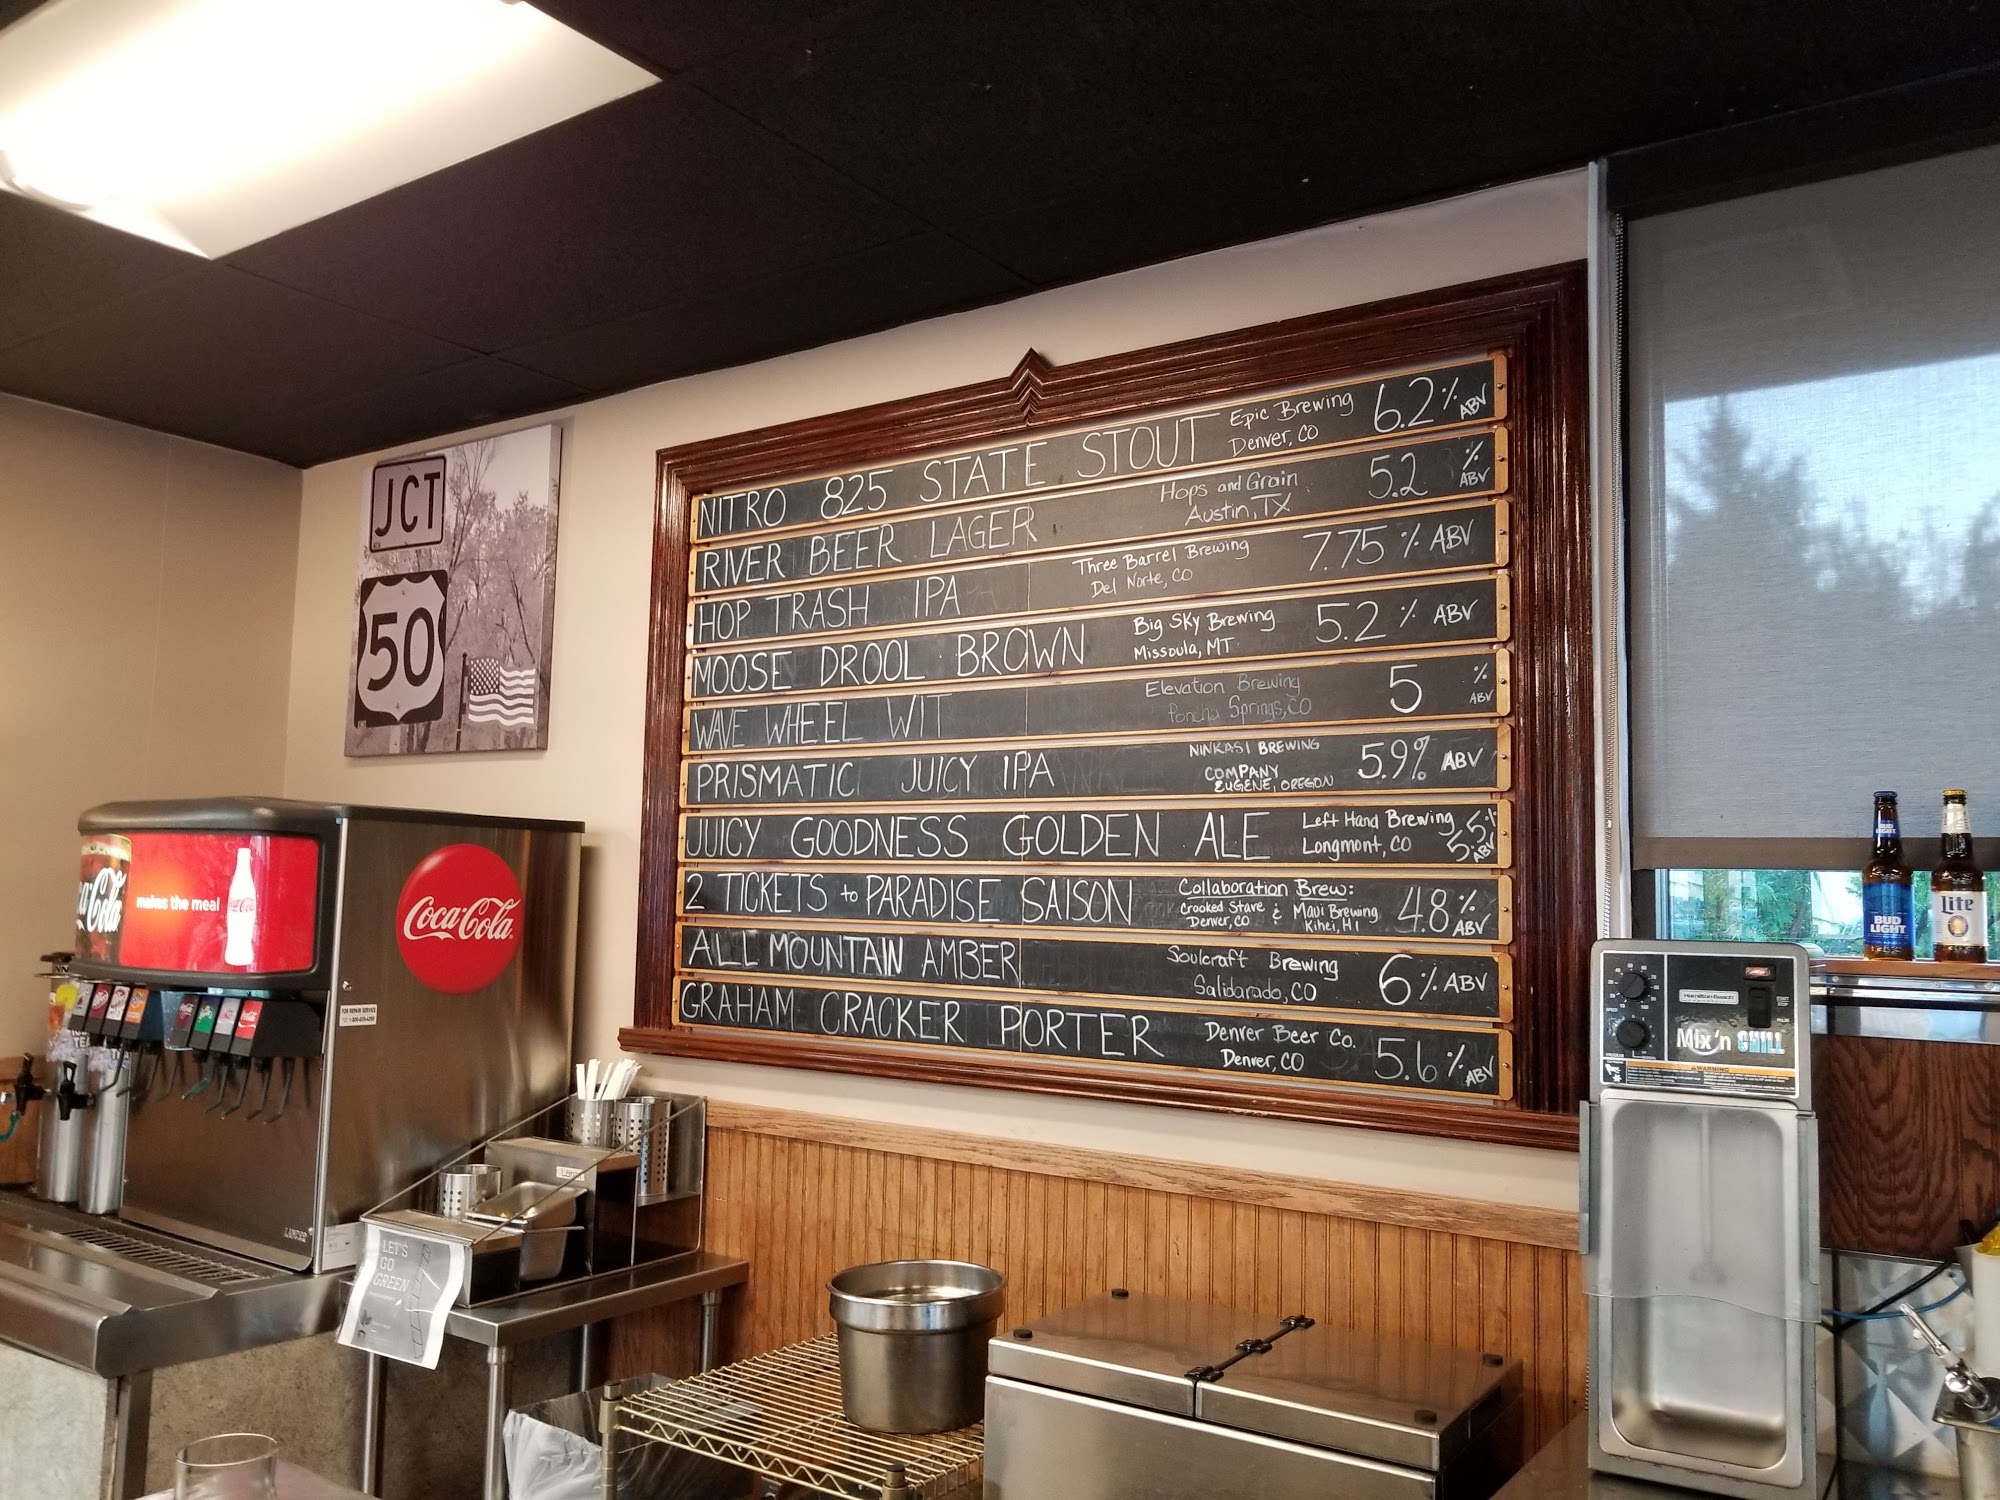 NITRO 825 STATE STOUT Epic Brewing Denver, CO 6.2% ABV
RIVER BEER LAGER Hops and Grain Austin, TX 5.2 % ABV
HOP TRASH IPA Three Barrel Brewing Del Norte, CO 7.75 % ABV
MOOSE DROOL BROWN Big Sky Brewing Missoula, MT 5.2 % ABV
WAVE WHEEL WIT Elevation Brewing Poncha Springs, CO 5 % ABV
PRISMATIC JUICY IPA NINKASI BREWING COMPANY EUGENE, OREGON 5.9% ABV
JUICY GOODNESS GOLDEN ALE Left Hand Brewing Longmont, CO 5.5% ABV
2 TICKETS to PARADISE SAISON Collaboration Brew: Crooked Stave Denver, CO & Maui Brewing Kihei, HI 4.8% ABV
ALL MOUNTAIN AMBER Soulcraft Brewing Salidarado, CO 6% ABV
GRAHAM CRACKER PORTER Denver Beer Co. Denver, CO 5.6% ABV
JCT
50
makes the meal
Coca-Cola
LET'S
GO
GREEN
Hamilton Beach
Mix'n CHILL
WARNING
BUD
LIGHT
Lite